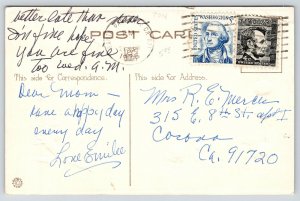 better late than never
I'm fine hope
You are fine
too
POST CARD
WASHINGTON
This side for Correspondence.
This side for Address.
Dear Mom -
have a happy day
every day
Love
Mrs R. E. Mercer
315 E. 8th St. apt
Corona
Ca. 91720